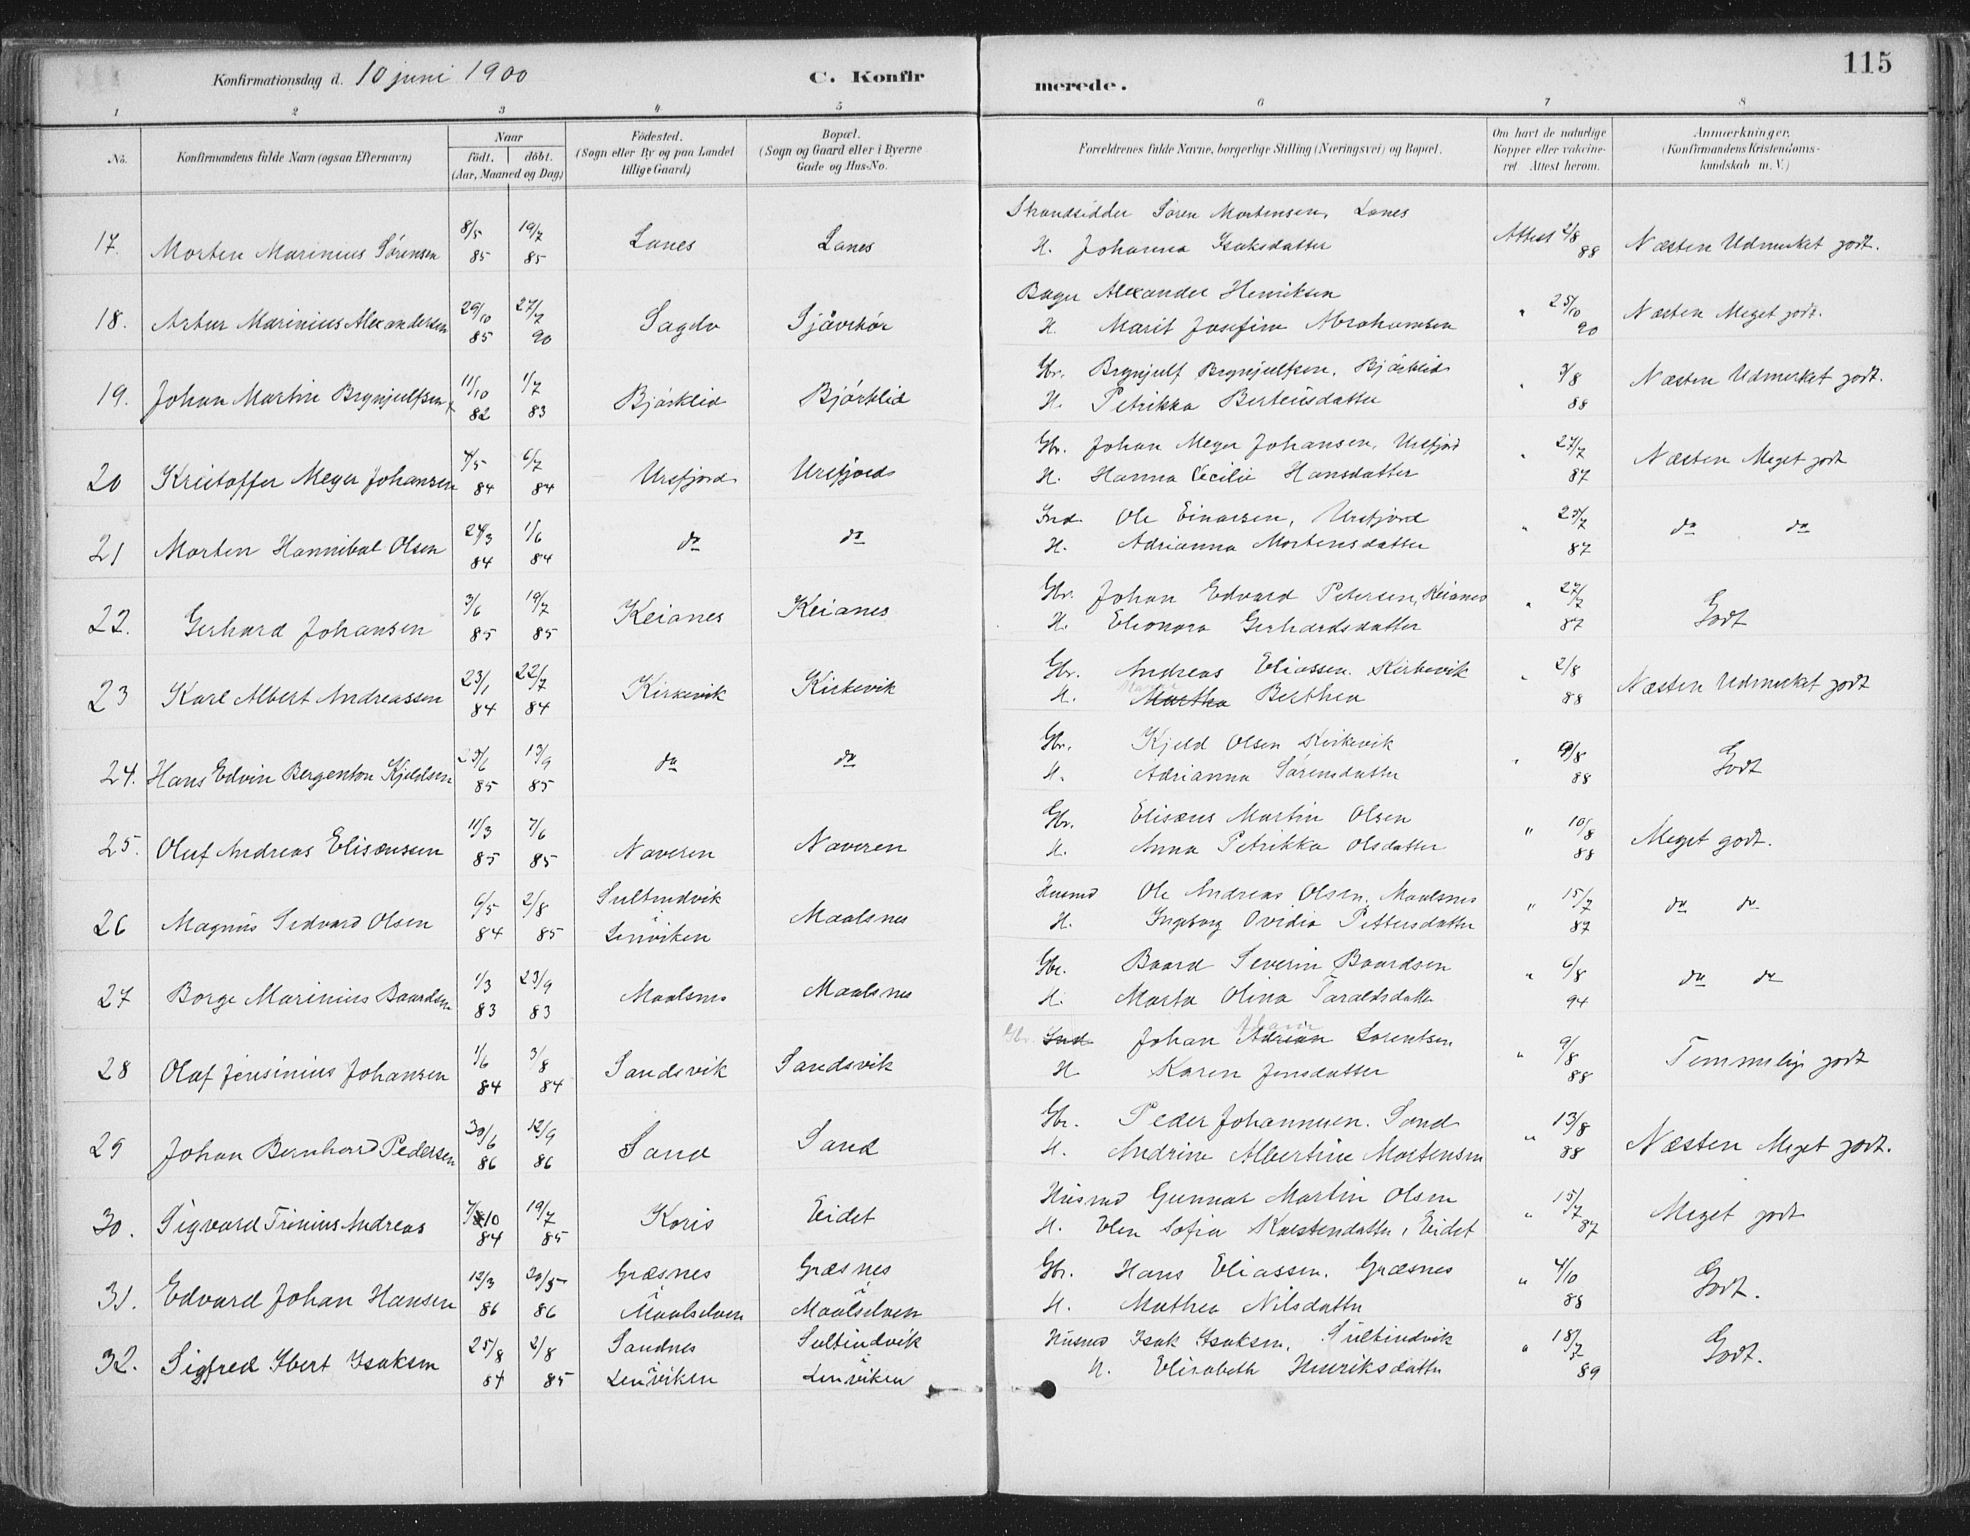 115
Konfirmationsdag d. 10 juni 1900 C. Konfirmerede.
1 2 3 4 5 6 7 8
No. Konfirmandens fulde Navn (ogsaa Efternavn) Naar födt. döbt. (Aar, Maaned og Dag) Födested. (Sogn eller By og paa Landet tillige Gaard) Bopæl. (Sogn og Gaard eller i Byerne Gade og Hus-No. Forældrenes fulde Navne, borgerlige Stilling (Næringsvei) og Bopæl. Om havt de naturlige Kopper eller vakcineret. Attest herom. Anmærkninger. (Konfirmandens Kristendomskundskab m. V.)
Strandsidder Sören Mortensen, Lanes
17. Morten Marinius Sörensen 8/5 85 19/7 85 Lanes Lanes H. Johanna Isaksdatter Attest 2/8 88 Næsten Udmerket godt.
Bager Alexander Henriksen
18. Artur Marinius Alexandersen 29/10 85 27/7 90 Sagelv H. Marit Josefine Abrahamsen " 25/10 90 Næsten Meget godt.
Gbr. Brynjulf Brynjulfsen, Bjórklid
19. Johan Martin Brynjulfsen 11/10 82 1/7 83 Bjórklid Bjórklid H. Petrikka Berteusdatter " 3/8 88 Næsten Udmerket godt.
Gbr. Johan Meyer Johansen, Ursfjord
20 Kristoffer Meyer Johansen 4/5 84 6/7 84 Ursfjord Ursfjord H. Hanna Cecilie Hansdatter " 27/7 87 Næsten Meget godt
Ind. Ole Einarsen, Ursfjord
21 Morten Hannibal Olsen 24/3 84 1/6 84 do do H. Adrianna Mortensdatter " 25/7 87 do do
Gbr. Johan Edvard Petersen, Keianes
22. Gerhard Johansen 3/6 85 19/7 85 Keianes Keianes H. Eleonora Gerhardsdatter " 27/7 87 Godt
Gbr. Andreas Eliassen. Kirkevik
23 Karl Albert Andreassen 23/1 84 22/7 84 Kirkevik Kirkevik H. Martha Berthea " 2/8 88 Næsten Udmerket godt
Gbr. Kjeld Olsen Kirkevik
24. Hans Edvin Bergenton Kjeldsen 23/6 85 13/9 85 do do H. Adrianna Sörensdatter " 9/8 88 Godt
Gbr. Elisæus Martin Olsen
25. Oluf Andreas Elisæussen 11/3 85 7/6 85 Naveren Naveren H. Anna Petrikka Olsdatter " 10/8 88 Meget godt.
Husmd Ole Andreas Olsen. Maalsnes
26 Magnus Sedvard Olsen 6/5 84 2/8 85 Sultindvik i Lenviken Maalsnes H. Ingeborg Ovidia Pettersdatter " 15/7 87 do do
Gbr. Baard Severin Baardsen
27 Borge Marinius Baardsen 1/3 83 23/9 83 Maalsnes Maalsnes H. Marta Olina Taraldsdatter " 6/8 94 do do
Gbr. Ind. Johan Adrian Lorentsen
28 Olaf Jensinius Johansen 1/6 84 3/8 84 Sandsvik Sandsvik H. Karen Jensdatter " 9/8 88 Temmelig godt
Gbr. Peder Johannesen. Sand
29 Johan Bernhard Pedersen 30/6 86 12/9 86 Sand Sand H. Andrine Albertine Mortensen " 13/8 88 Næsten Meget godt.
Husmd Gunnar Martin Olsen
30. Sigvard Trinius Andreas 7/10 84 19/7 85 Koris Eidet H. Elen Sofia Karstendatter, Eidet " 15/7 87 Meget godt
Gbr. Hans Eliassen. Græsnes
31. Edvard Johan Hansen 12/3 86 30/5 86 Græsnes i Maalselven Græsnes i Maalselven H. Mathea Nilsdatter " 4/10 88 Godt.
Husmd Isak Isaksen, Sultindvik
32. Sigfred Ibert Isaksen 25/8 84 2/8 85 Sandnes i Lenviken Sultindvik i Lenviken H. Elisabeth Henriksdatter " 18/7 89 Godt.